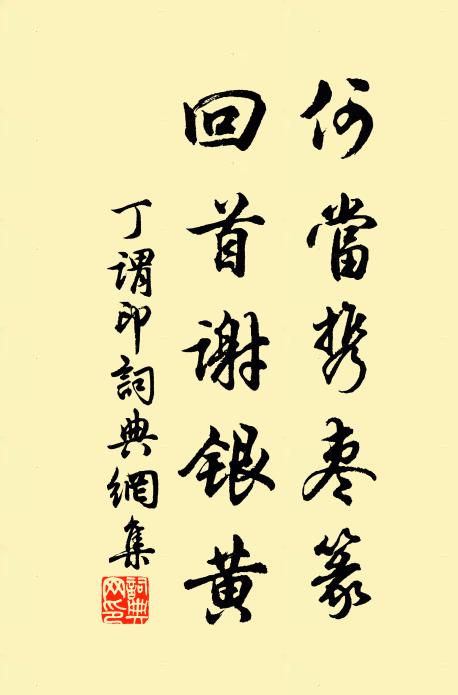 何當携枣篆
回首謝銀黄
丁謂印詞典網集
詞典网印